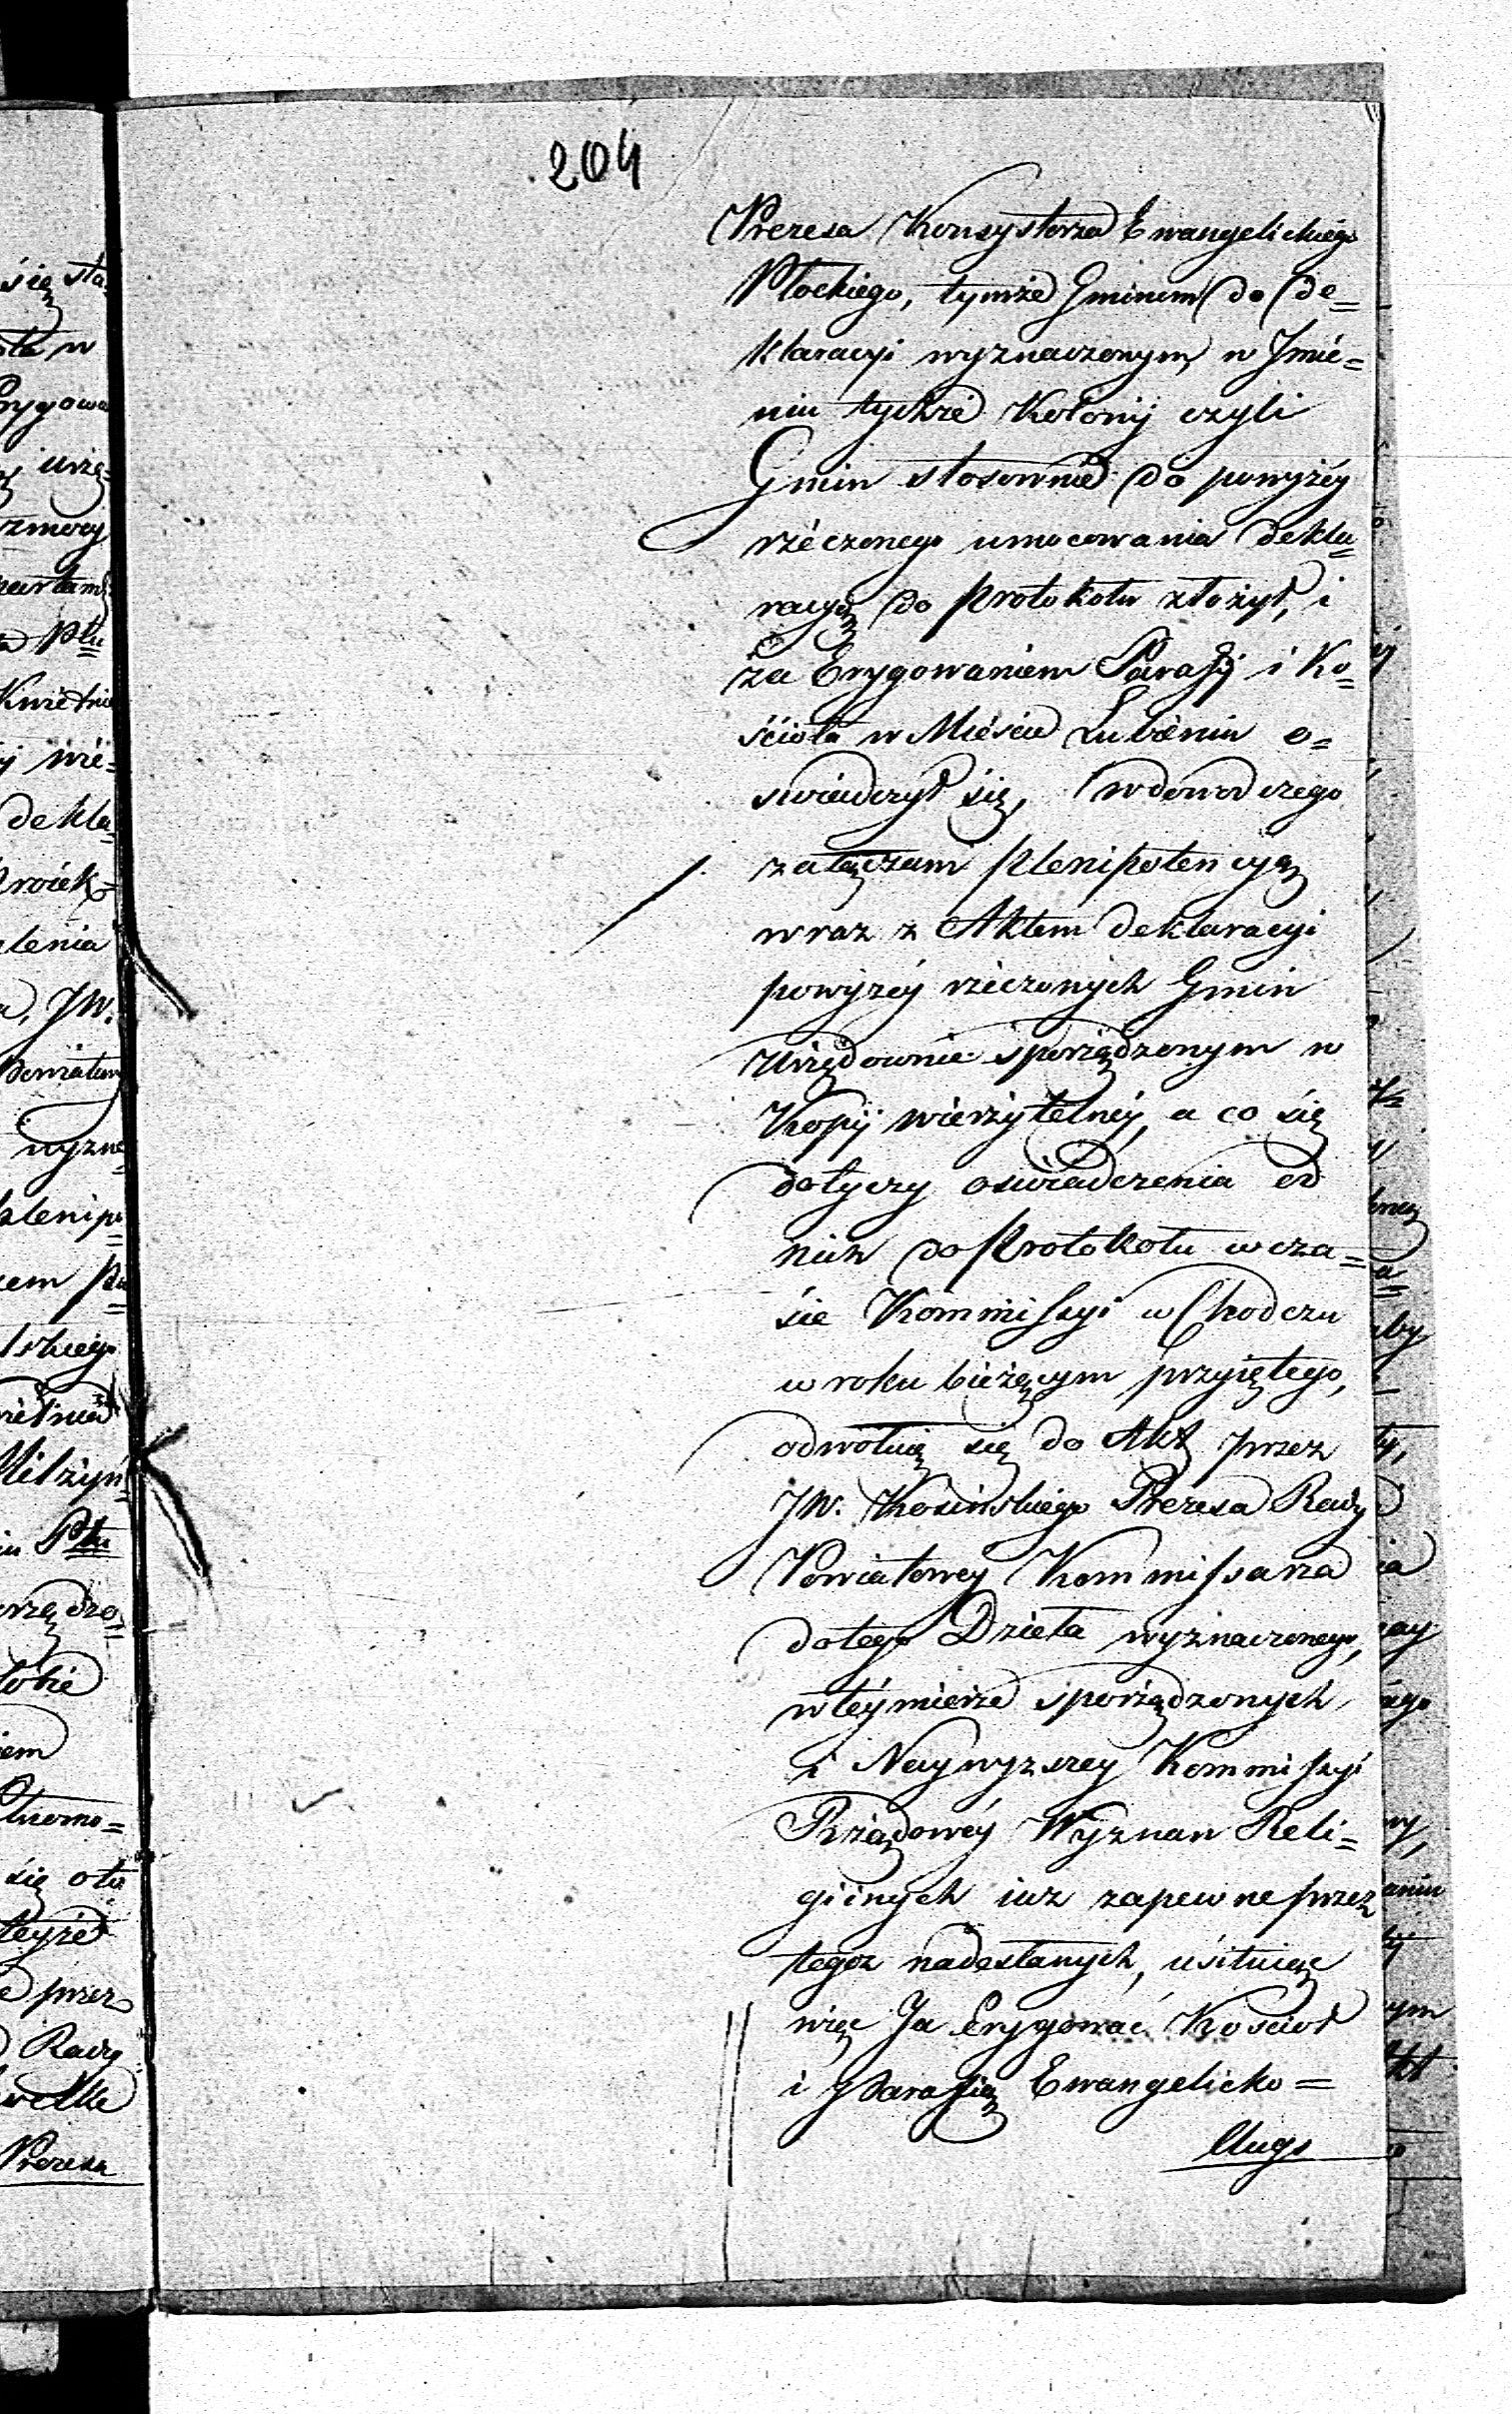 204
Prezesa Konsystorza Ewangelickiego
Płockiego, tymże Gminom do de=
klaracyi wyznaczonym, w Jmié=
niu tychże Kolonij czyli
Gmin stosownie do powyżéy
rzéczonego umocowania dekla=
racyą do protokołu złożył, i
za Erygowaniem Parafij i Ko=
ścioła w Mieście Lubieniu o=
swiadczył się, w dowod czego
załączam plenipotencyą
wraz z Aktem deklaracyi
powyżéy rzeczonych Gmin
Urzędownie sporządzonym w
Kopij wierzytelnéy, a co się
dotyczy oswiadczenia od
nich do protokołu w cza=
sie Kommissyi w Chodczu
w roku bieżącym przyiętego,
odwołuię się do Akt przez
JW. Kosińskiego Prezesa Rady
Powiatowey Kommissarza
do tego Dzieła wyznaczonego,
w téy mierze sporządzonych
i Naywyższey Kommissyi
Rządowéy Wyznan Reli=
giinych iuz zapewne przez
tegoz nadesłanych, usiłuiąc
więc Ja Erygować Kościoł
i Parafią Ewangelicko=
Augs
się sta=
ła w
Erygowa
urzę=
Kwietnia
wié=
dekla=
Proiek=
lenia
JW.
wyzna=
plenipo=
lskiego
rządzo=
się oto
teyże
przez
Rady
Prezesa